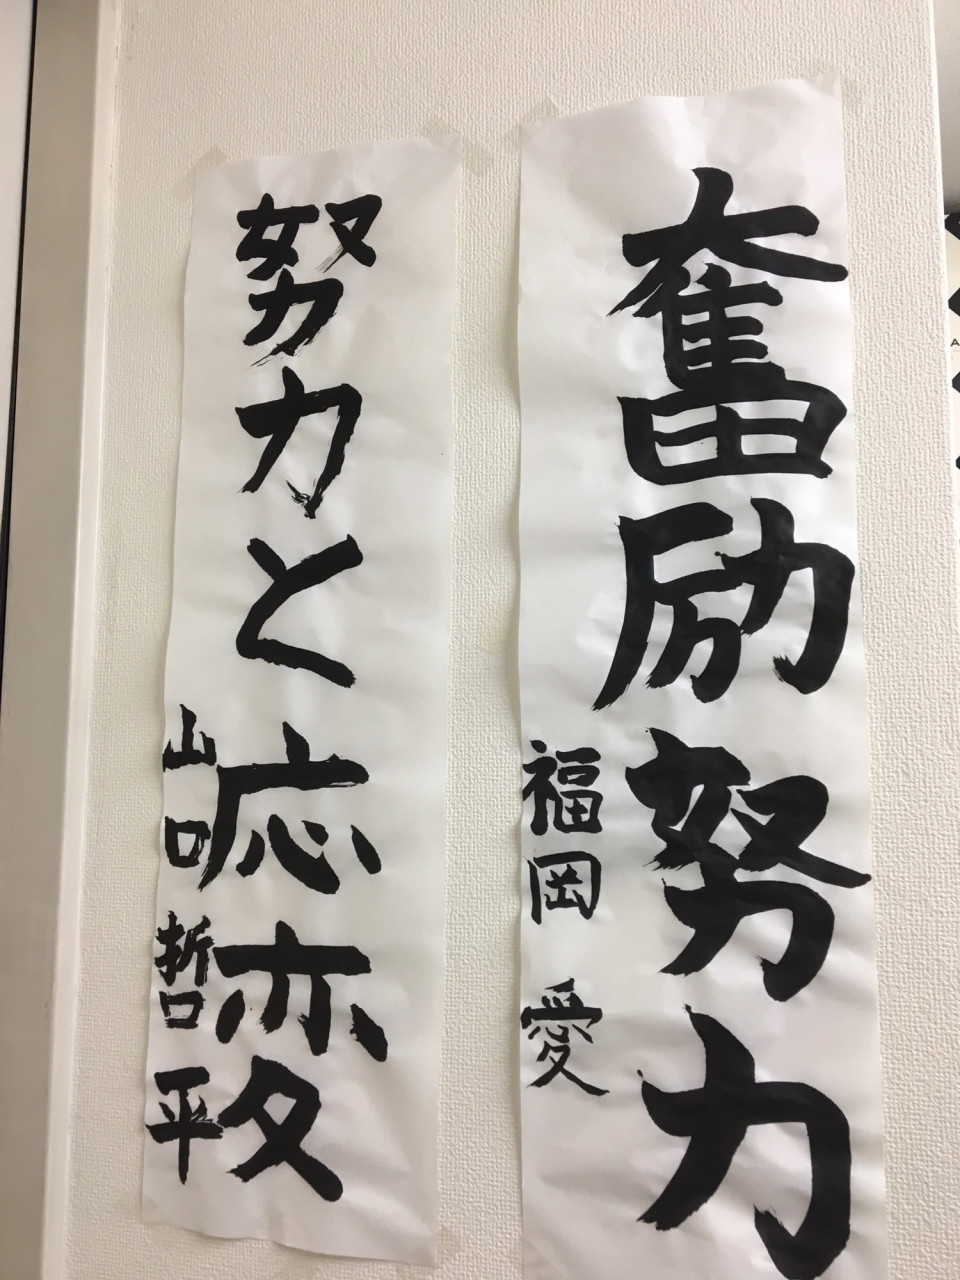 奮励努力
福岡 愛
努力と応変
山口 哲平